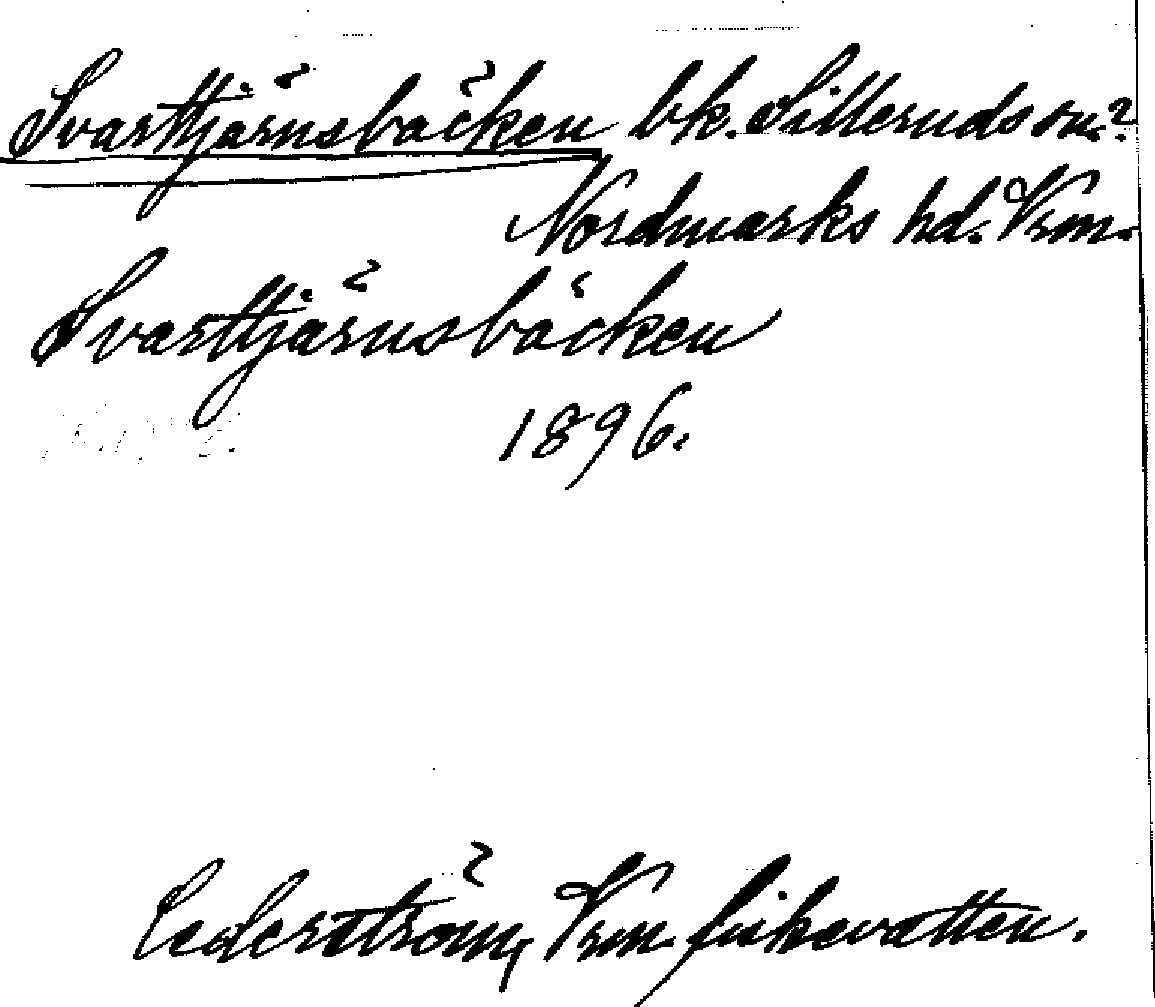 Svarttjärnsbäcken bk. Silleruds sn.?
Nordmarks hd. Vrm.
Svarttjärnsbäcken
1896.
Cederström, Vrm. fiskevatten.